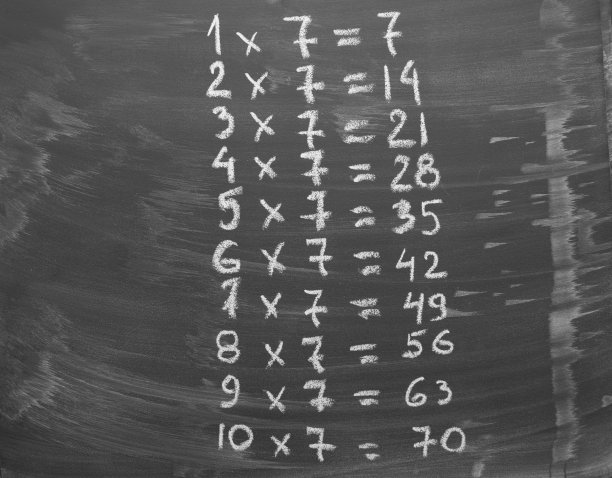 1 x 7 = 7
2 x 7 = 14
3 x 7 = 21
4 x 7 = 28
5 x 7 = 35
6 x 7 = 42
7 x 7 = 49
8 x 7 = 56
9 x 7 = 63
10 x 7 = 70